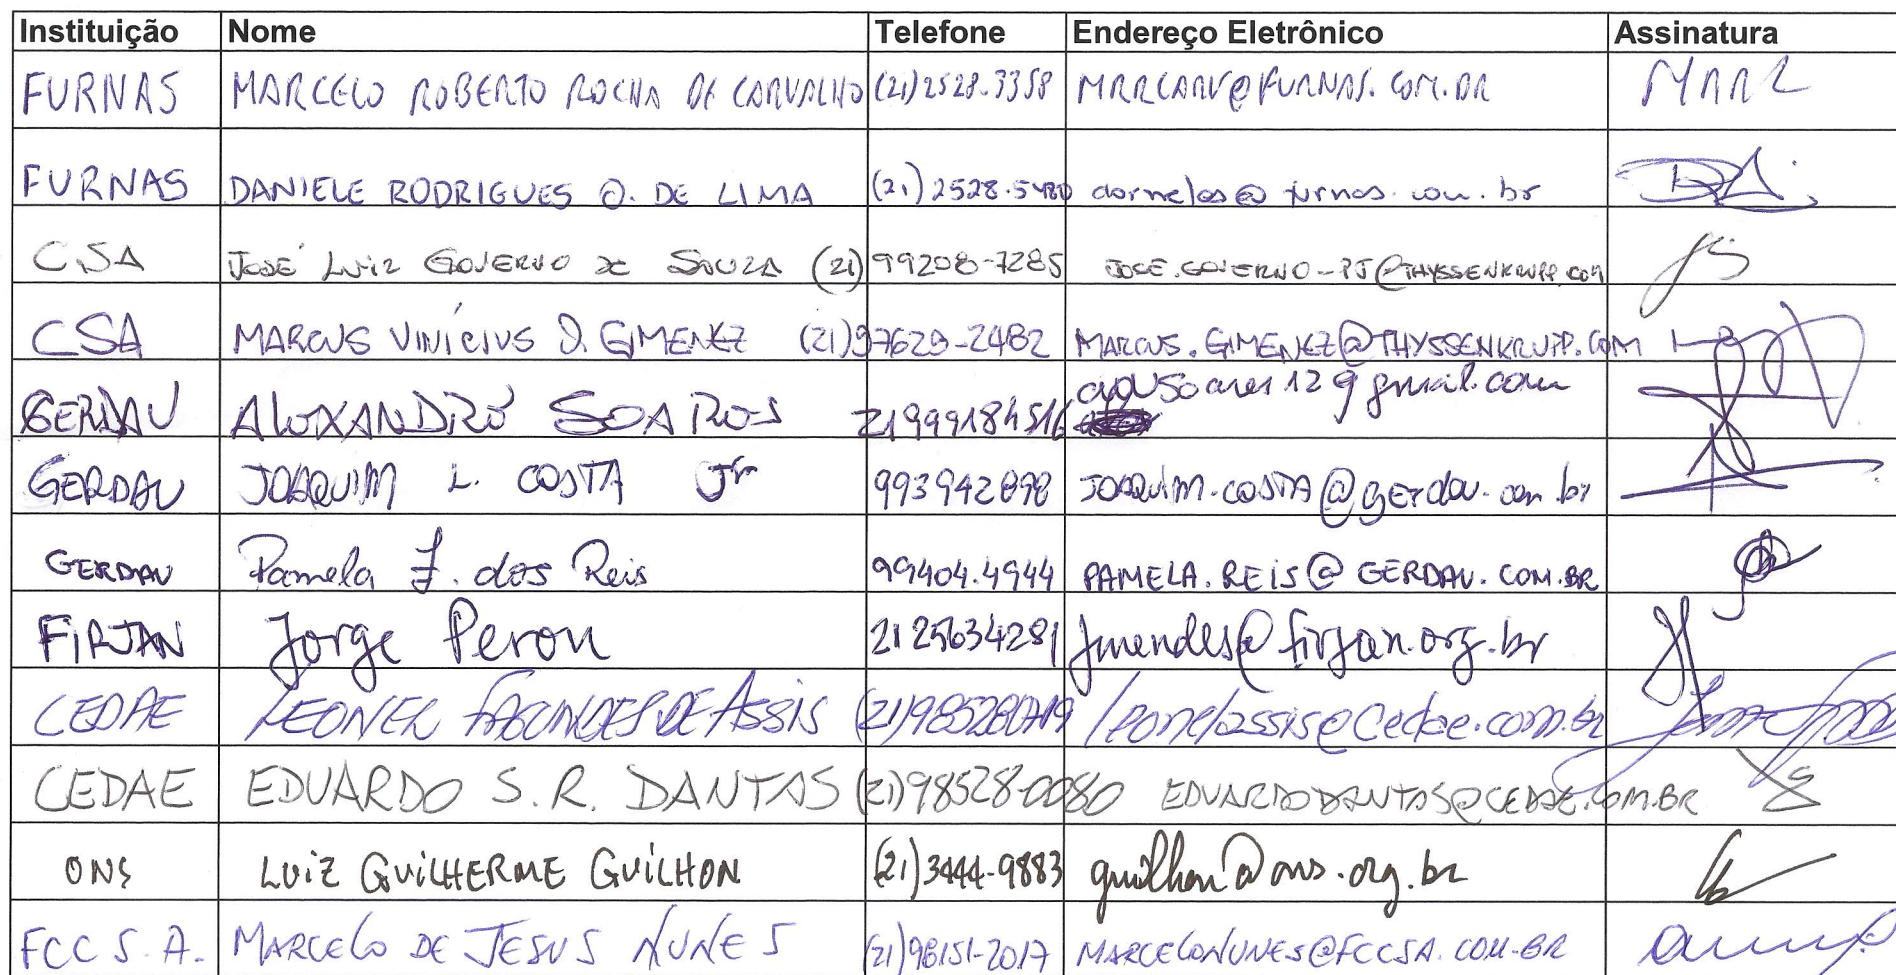 Instituição Nome Telefone Endereço Eletrônico Assinatura
FURNAS MARCELO ROBERTO ROCHA DE CARVALHO (21)2528-3358 MRRCARV@FURNAS.COM.BR MRRC
FURNAS DANIELE RODRIGUES O. DE LIMA (21)2528.5480 dornelas@furnas.com.br
CSA JOSÉ LUIZ GOVERNO DE SOUZA (21)99208-7285 JOSE.GOVERNO-PJ@THYSSENKRUPP.COM
CSA MARCUS VINÍCIUS D. GIMENEZ (21)97629-2482 MARCUS.GIMENEZ@THYSSENKRUPP.COM
GERDAU ALEXANDRE SOARES 21999184516
GERDAU JOAQUIM L. COSTA Jr 993942898 JOAQUIM.COSTA@gerdau.com.br
GERDAU Pamela F. dos Reis 99404.4944 PAMELA.REIS@GERDAU.COM.BR
FIRJAN Jorge Peron 2125634281 jmendes@firjan.org.br
CEDAE LEONEL FAGUNDES DE ASSIS (21)985280719 leonelassis@cedae.com.br
CEDAE EDUARDO S. R. DANTAS (21)98528-0080 EDUARDODANTAS@CEDAE.COM.BR
ONS LUIZ GUILHERME GUILHON (21)3444-9883 guilhon@ons.org.br
FCC S.A. MARCELO DE JESUS NUNES (21)98151-2017 MARCELONUNES@FCCSA.COM.BR